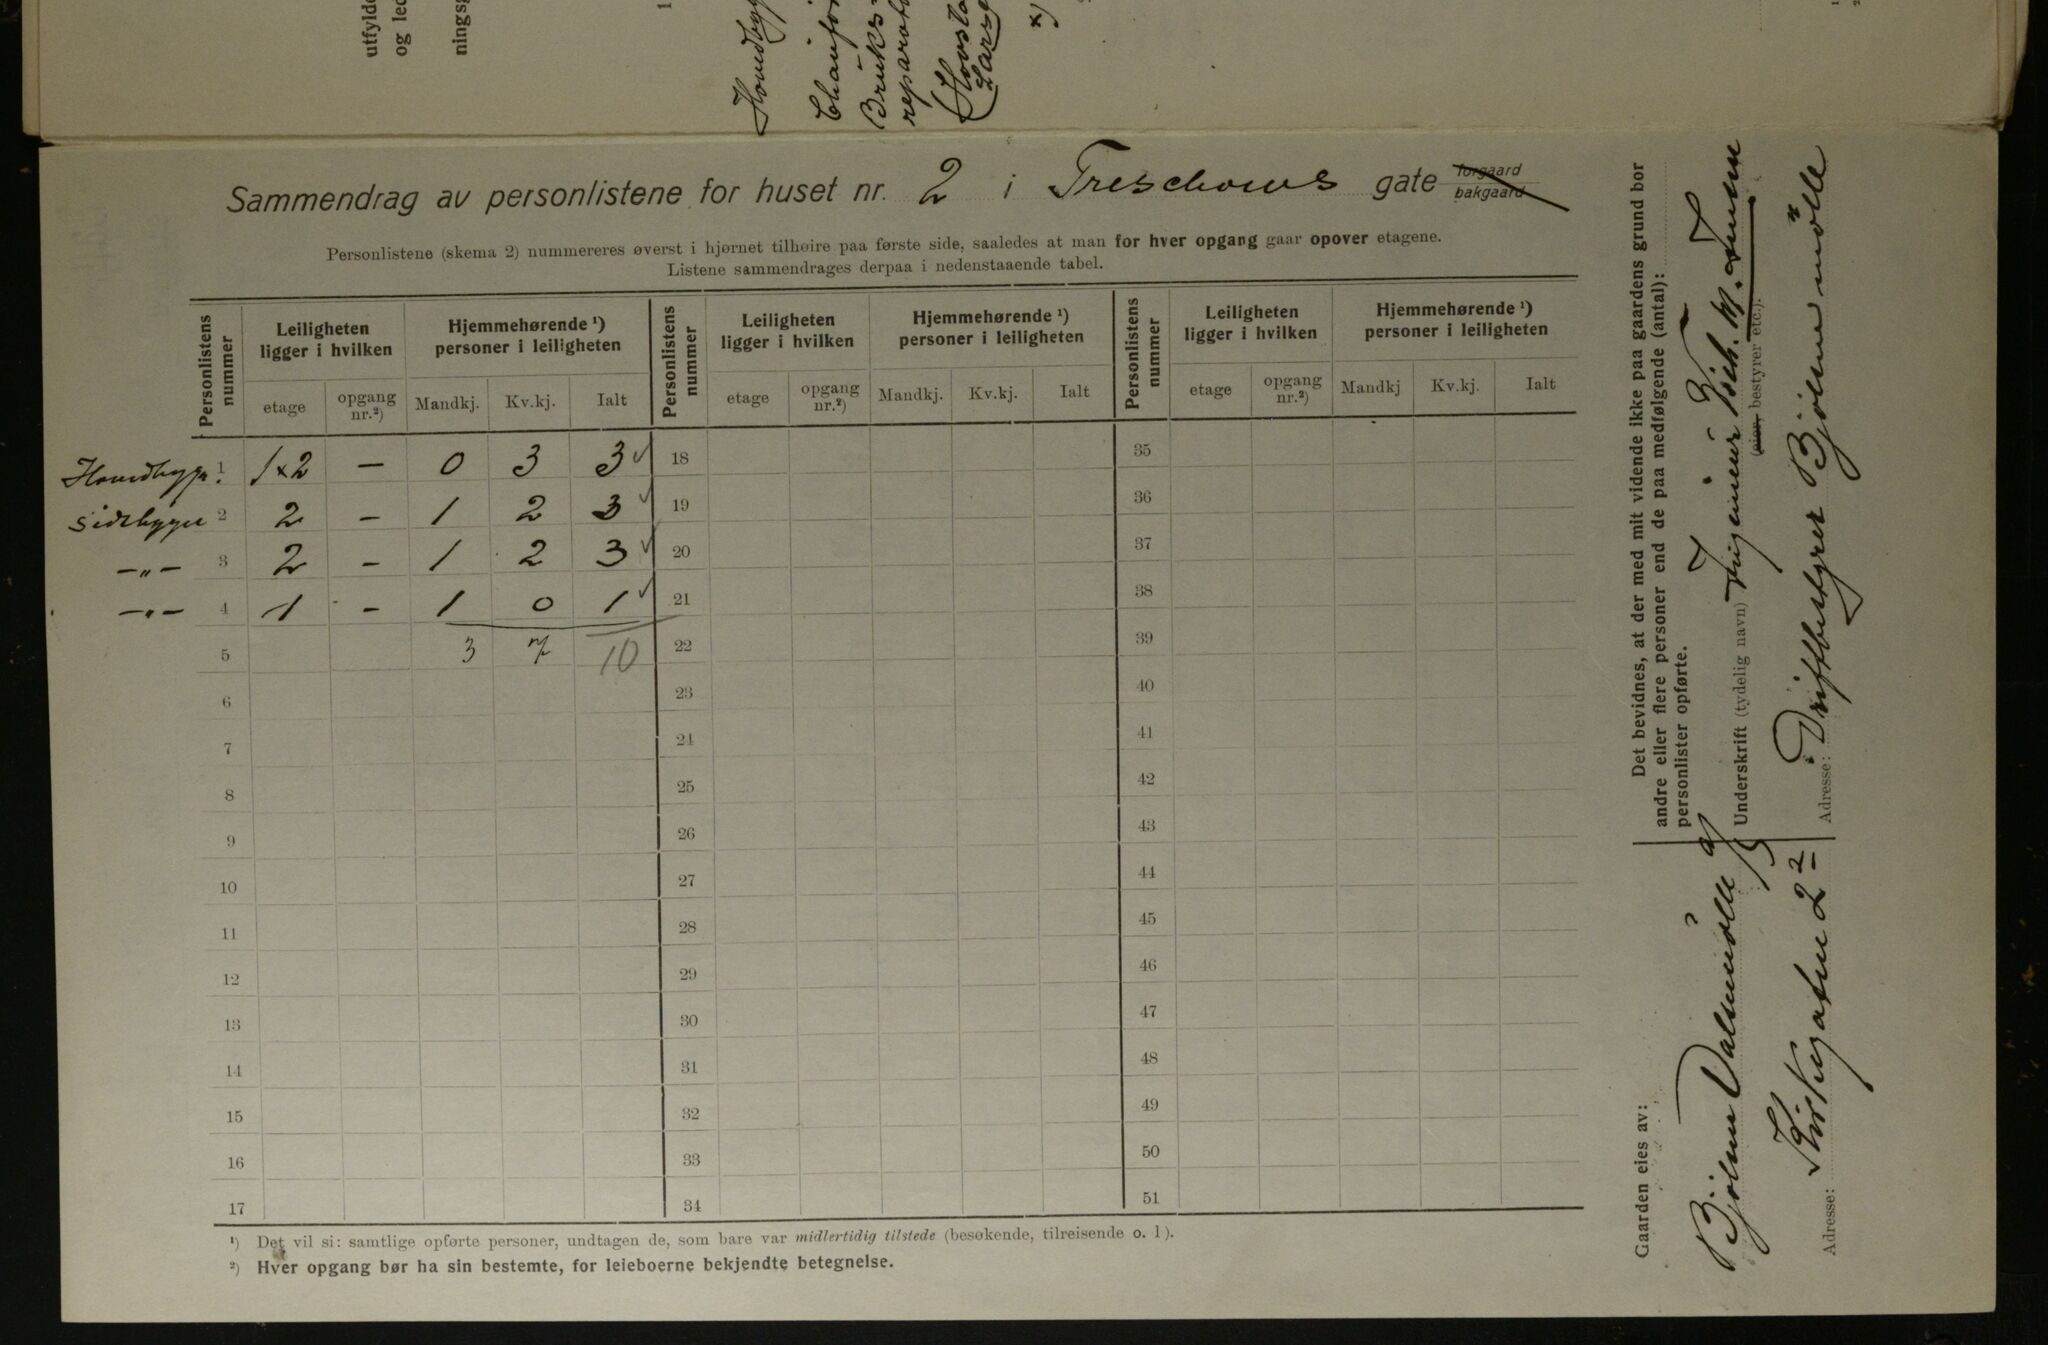 utfylde
og led
ningsg
1
Hovedbyg
Chauffø
Bruks-
reparato
(Hovsta
Larse
*)
Sammendrag av personlistene for huset nr. 2 i Treschows gate forgaard bakgaard
Personlistene (skema 2) nummereres øverst i hjørnet tilhøire paa første side, saaledes at man for hver opgang gaar opover etagene.
Listene sammendrages derpaa i nedenstaaende tabel.
Personlistens nummer | Leiligheten ligger i hvilken | Hjemmehørende ¹) personer i leiligheten | Personlistens nummer | Leiligheten ligger i hvilken | Hjemmehørende ¹) personer i leiligheten | Personlistens nummer | Leiligheten ligger i hvilken | Hjemmehørende ¹) personer i leiligheten
etage | opgang nr.²) | Mandkj. | Kv.kj. | Ialt | etage | opgang nr.²) | Mandkj. | Kv.kj. | Ialt | etage | opgang nr.²) | Mandkj | Kv.kj. | Ialt
Hovedbygn. 1 | 1 x 2 | — | 0 | 3 | 3 ✓ | 18 | 35
Sidebygn 2 | 2 | – | 1 | 2 | 3 ✓ | 19 | 36
—„— 3 | 2 | – | 1 | 2 | 3 ✓ | 20 | 37
—„— 4 | 1 | – | 1 | 0 | 1 ✓ | 21 | 38
5 | 3 | 7 | 10 | 22 | 39
6 | 23 | 40
7 | 24 | 41
8 | 25 | 42
9 | 26 | 43
10 | 27 | 44
11 | 28 | 45
12 | 29 | 46
13 | 30 | 47
14 | 31 | 48
15 | 32 | 49
16 | 33 | 50
17 | 34 | 51
¹) Det vil si: samtlige opførte personer, undtagen de, som bare var midlertidig tilstede (besøkende, tilreisende o. l).
²) Hver opgang bør ha sin bestemte, for leieboerne bekjendte betegnelse.
Gaarden eies av:
Bjølsen Valsemølle A/S
Adresse: Kirkegaten 2²
Det bevidnes, at der med mit vidende ikke paa gaardens grund bor
andre eller flere personer end de paa medfølgende (antal):
personlister opførte.
Underskrift (tydelig navn) Ingeniør
(eier, bestyrer etc.).
Adresse: Driftbestyrer Bjølsenmølle